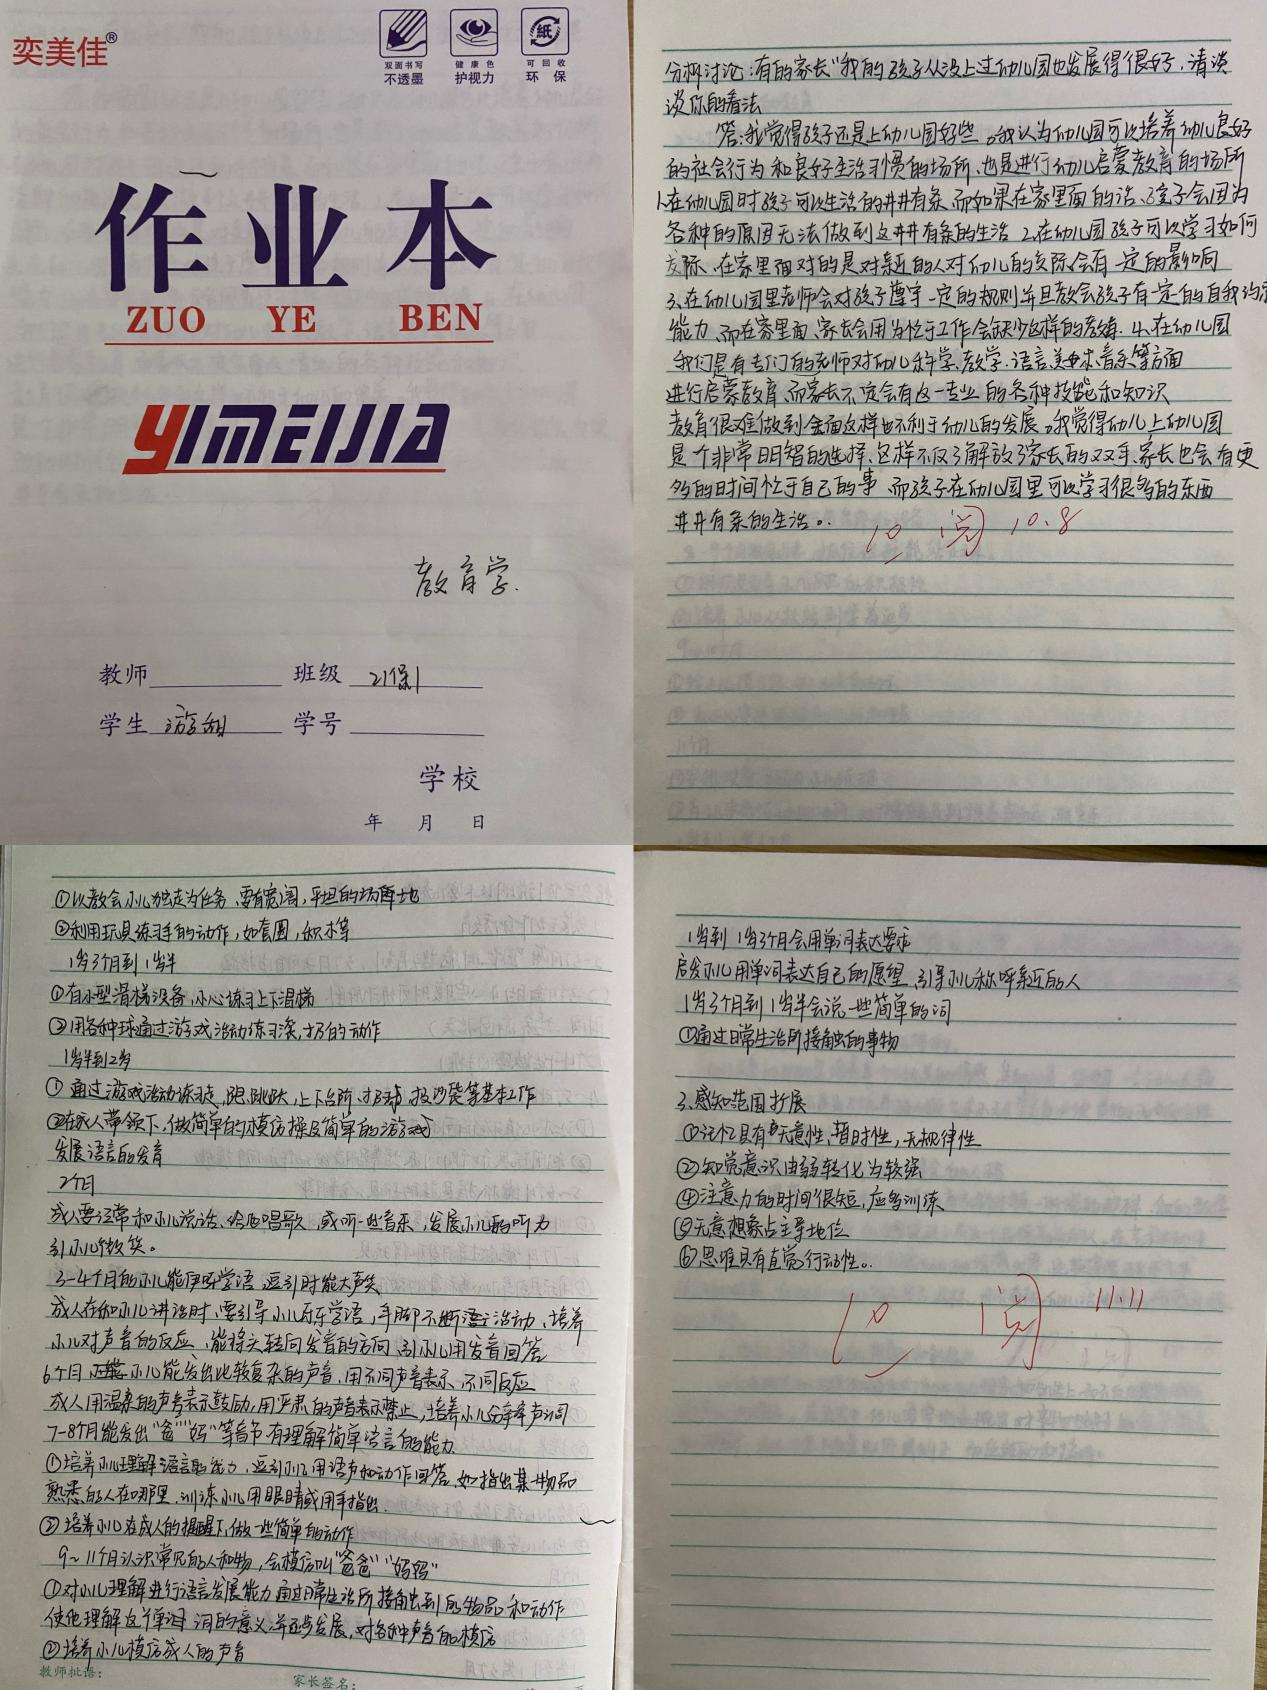 奕美佳®
双面书写 健康色 可回收
不透墨 护视力 环保
紙
作业本
ZUO YE BEN
YIMEIJIA
教育学.
教师 班级 21保1
学生 游甜 学号
学校
年 月 日
分析讨论:有的家长"我的孩子从没上过幼儿园也发展得很好,请谈
谈你的看法
答:我觉得孩子还是上幼儿园好些。我认为幼儿园可以培养幼儿良好
的社会行为和良好生活习惯的场所、也是进行幼儿启蒙教育的场所
1.在幼儿园时孩子可以生活的井井有条、而如果在家里面的话、孩子会因为
各种的原因无法做到这井井有条的生活 2.在幼儿园孩子可以学习如何
交际、在家里面对的是对亲近的人对幼儿的交际会有一定的影响
3、在幼儿园里老师会对孩子遵守一定的规则并且教会孩子有一定的自我约束
能力、而在家里面、家长会因为忙于工作会缺少这样的教育. 4、在幼儿园
我们是有专门的老师对幼儿科学、数学、语言、美术、音乐等方面
进行启蒙教育、而家长不定会有这一专业的各种技能和知识
教育很难做到全面这样也不利于幼儿的发展。我觉得幼儿上幼儿园
是个非常明智的选择、这样不仅了解放了家长的双手、家长也会有更
多的时间忙于自己的事 而孩子在幼儿园里可以学习很多的东西
井井有条的生活。
优 阅 10.8
①以教会小儿独走为任务、要有宽阔,平坦的场地
②利用玩具练习手的动作,如套圈,积木等
1岁3个月到1岁半
①有小型滑梯设备,小心练习上下滑梯
②用各种球通过游戏活动练习滚,扔的动作
1岁半到2岁
①通过游戏活动练习走,跑,跳跃,上下台阶、扔球、投沙袋等基本工作
②在成人带领下,做简单的模仿操及简单的游戏
发展语言的发育
2个月
成人要经常和小儿说话、给他唱歌,或听一些音乐,发展小儿的听力
引小儿微笑。
3-4个月的小儿能伊呀学语、逗引时能大声笑
成人在和小儿讲话时、要引导小儿乐学语,手脚不断活动、培养
小儿对声音的反应、能将头转向发音的方向、引小儿用发音回答
6个月 小儿能发出比较复杂的声音,用不同声音表示、不同反应
成人用温柔的声音表示鼓励,用严肃的声音表示禁止、培养小儿分辨声调
7-8个月能发出"爸""妈"等音节、有理解简单语言的能力
①培养小儿理解语言的能力、逗引小儿用语声和动作回答、如指出某一物品
熟悉的人在哪里、训练小儿用眼睛或用手指出.
②培养小儿在成人的提醒下,做一些简单的动作
9~11个月认识常见的人和物,会模仿叫"爸爸""妈妈"
①对小儿理解进行语言发展能力、通过日常生活所接触到的物品和动作
使他理解这个单词 词的意义、并逐步发展,对各种声音的模仿
②培养小儿模仿成人的声音
教师批语: 家长签名:
1岁到1岁3个月会用单词表达要求
启发小儿用单词表达自己的愿望、引导小儿称呼亲近的人
1岁3个月到1岁半会说一些简单的词
①通过日常生活所接触的事物
3、感知范围扩展
①记忆具有无意性、暂时性,无规律性
②知觉意识由弱转化为较强
④注意力的时间很短,应多训练
⑤无意想象占主导地位
⑥思维具有直觉行动性。
优 阅 11.11